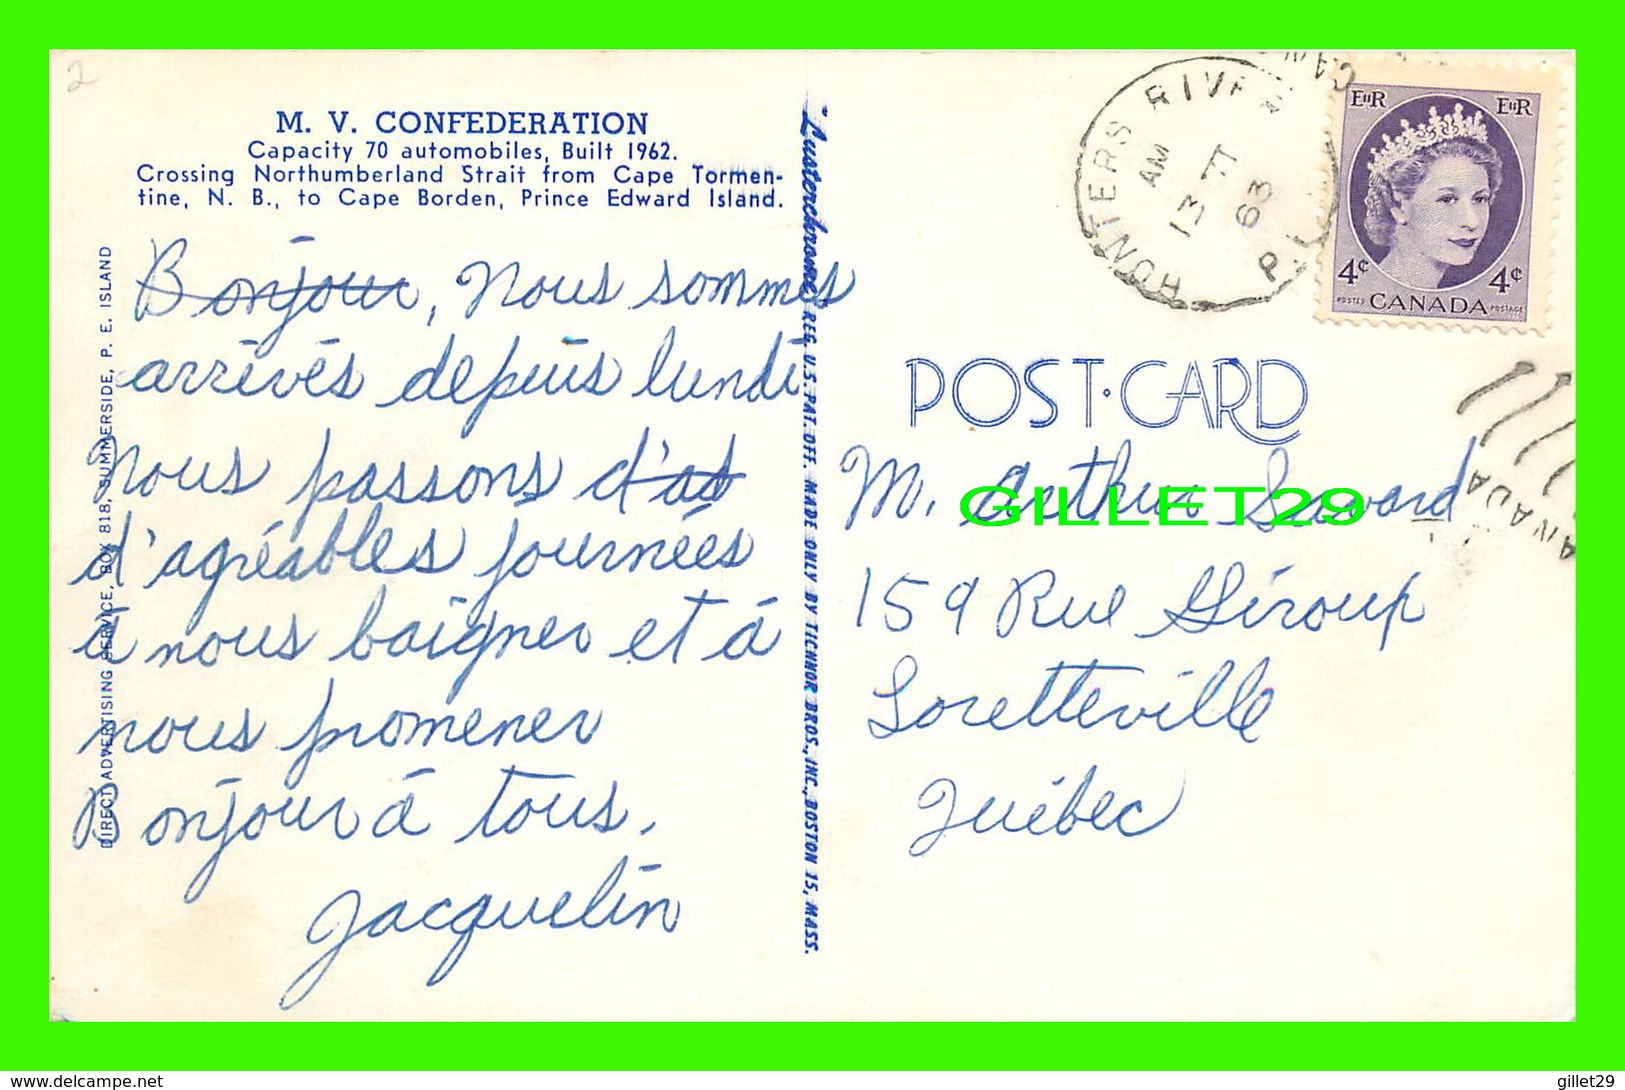 2
M. V. CONFEDERATION
Capacity 70 automobiles, Built 1962.
Crossing Northumberland Strait from Cape Tormen-
tine, N. B., to Cape Borden, Prince Edward Island.
Bonjour, nous sommes
arrivés depuis lundi
Nous passons d'as
d'agréables journées
à nous baigner et à
nous promener
Bonjour à tous.
Jacquelin
DIRECT ADVERTISING SERVICE, BOX 818, SUMMERSIDE, P. E. ISLAND
"Lusterchrome" REG. U.S. PAT. OFF. MADE ONLY BY TICHNOR BROS., INC., BOSTON 15, MASS.
HUNTERS RIVER
AM
13
63
P.
EIIR EIIR
4¢ 4¢
POSTES CANADA POSTAGE
POST·CARD
CANADA
M. Arthur Savard
GILLET29
159 Rue Giroux
Loretteville
Québec
www.delcampe.net
gillet29